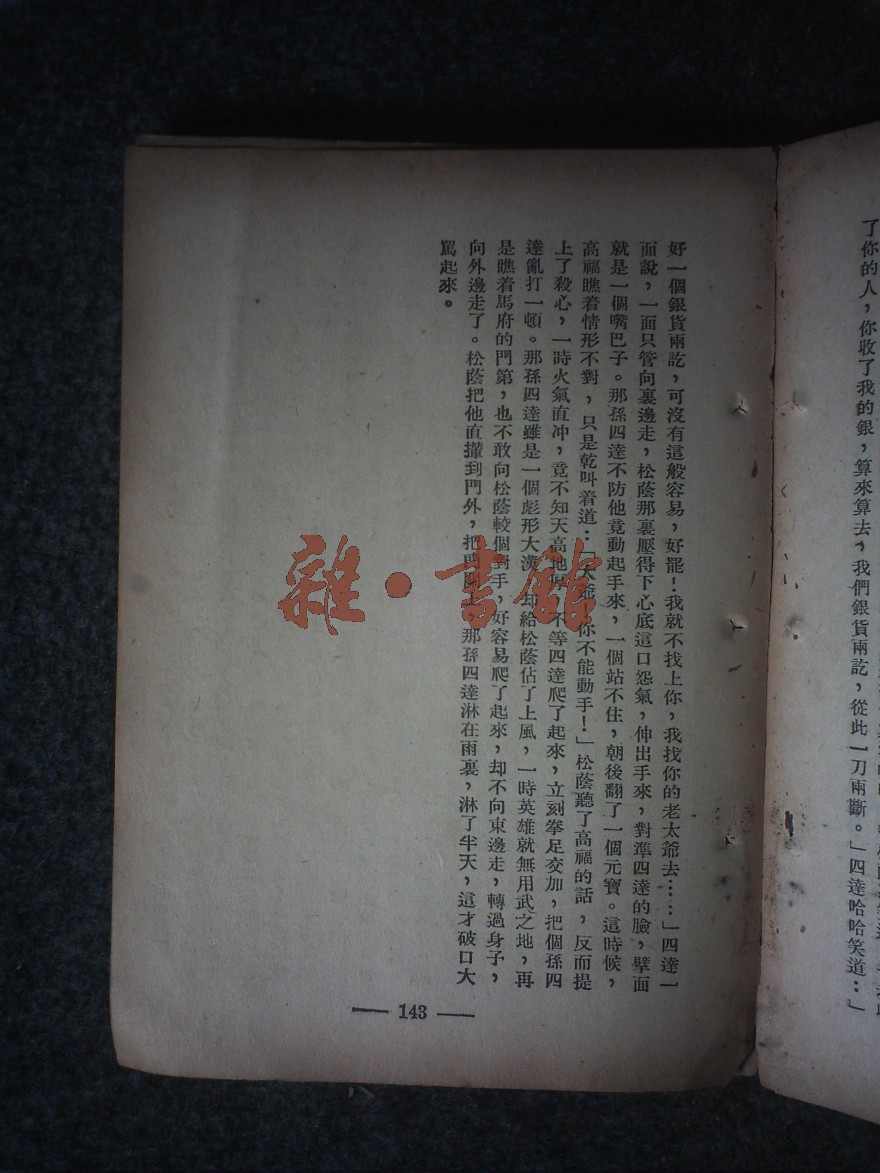 了你的人，你收了我的銀，算來算去，我們銀貨兩訖，從此一刀兩斷。」四達哈哈笑道：」
好一個銀貨兩訖，可沒有這般容易，好罷！我就不找上你，我找你的老太爺去……」四達一
面說，一面只管向裏邊走，松蔭那裏壓得下心底這口怨氣，伸出手來，對準四達的臉，劈面
就是一個嘴巴子。那孫四達不防他竟動起手來，一個站不住，朝後翻了一個元寶。這時候，
高福瞧着情形不對，只是乾叫着道：「大爺，你不能動手！」松蔭聽了高福的話，反而提
上了殺心，一時火氣直冲，竟不知天高地，不等四達爬了起來，立刻拳足交加，把個孫四
達亂打一頓。那孫四達雖是一個彪形大漢，却給松蔭佔了上風，一時英雄就無用武之地，再
是瞧着馬府的門第，也不敢向松蔭較個對手，好容易爬了起來，却不向東邊走，轉過身子，
向外邊走了。松蔭把他直攆到門外，把門，那孫四達淋在雨裏，淋了半天，這才破口大
罵起來。
— 143 —
雜·書館